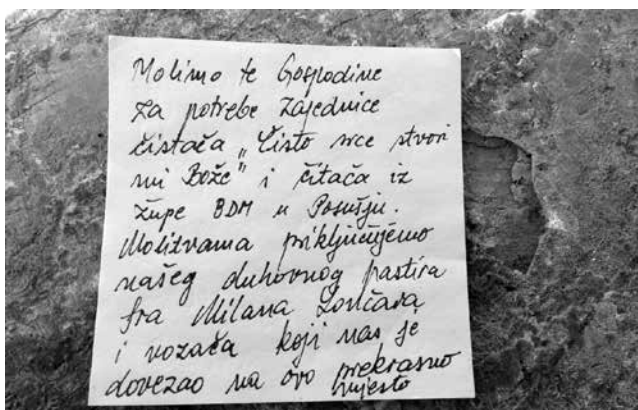 Molimo te Gospodine
za potrebe zajednice
čistača „Čisto srce stvori
mi Bože" i čitača iz
župe BDM u Posušju.
Molitvama priključujemo
našeg duhovnog pastira
fra Milana Lončara
i vozača koji nas je
dovezao na ovo prekrasno
mjesto